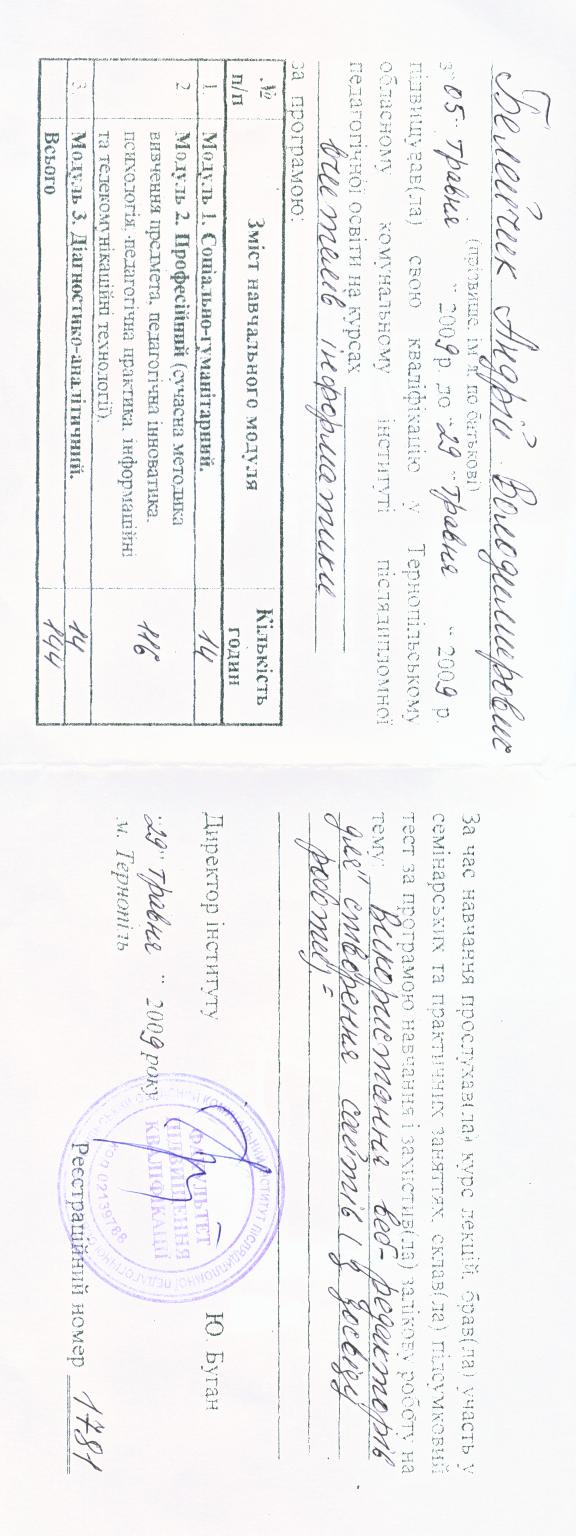 Белейчик Андрій Володимирович
(прізвище, ім'я, по батькові)
з "05" травня 2009 р. до "29" травня 2009 р.
підвищував(ла) свою кваліфікацію у Тернопільському
обласному комунальному інституті післядипломної
педагогічної освіти на курсах
вчителів інформатики
за програмою:
№ п/п Зміст навчального модуля Кількість годин
1. Модуль 1. Соціально-гуманітарний. 14
2 Модуль 2. Професійний (сучасна методика
вивчення предмета, педагогічна інноватика,
психологія, педагогічна практика, інформаційні 116
та телекомунікаційні технології).
3. Модуль 3. Діагностико-аналітичний. 14
Всього 144
За час навчання прослухав(ла) курс лекцій, брав(ла) участь у
семінарських та практичних заняттях, склав(ла) підсумковий
тест за програмою навчання і захистив(ла) залікову роботу на
тему: Використання веб-редакторів
для створення сайтів (з досвіду
роботи)
Директор інституту Ю. Буган
"29" травня 2009 року
м. Тернопіль
ФАКУЛЬТЕТ
ПІДВИЩЕННЯ
КВАЛІФІКАЦІЇ
02139788
Реєстраційний номер 1781